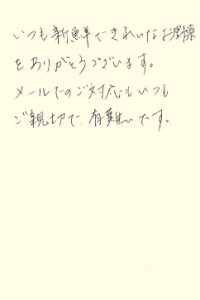 いつも新鮮できれいなお野菜
をありがとうございます。
メールでのご対応もいつも
ご親切で有難いです。